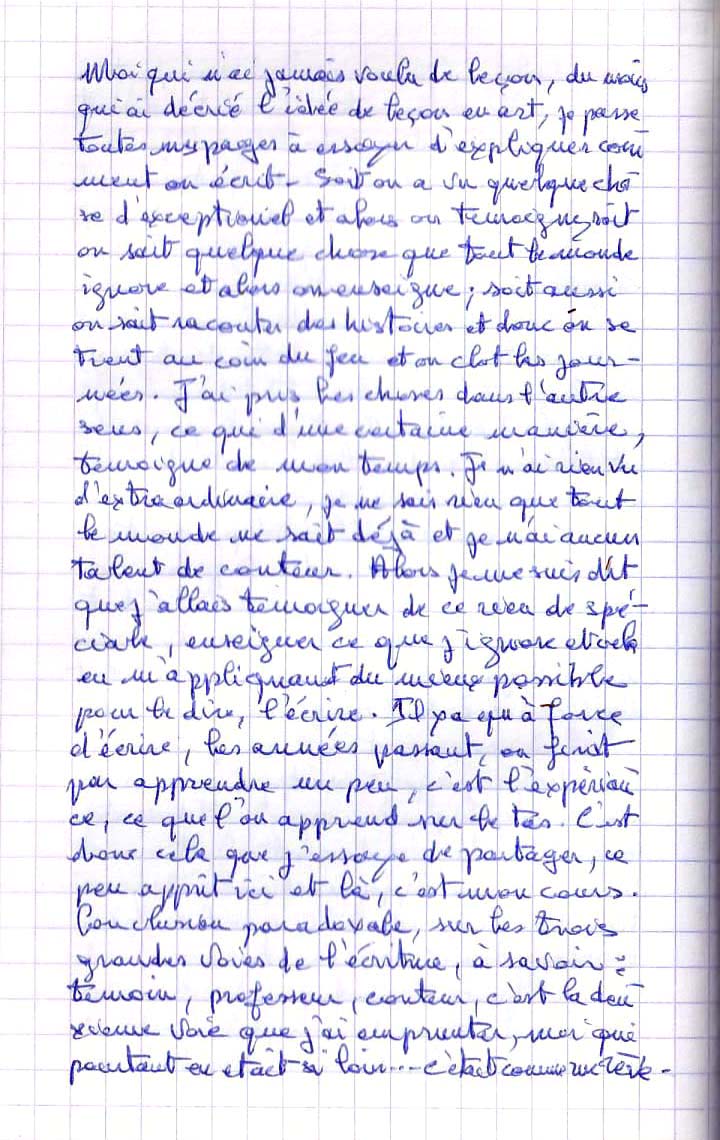 Moi qui n'ai jamais voulu de leçon, du moins
qui ai décrié l'idée de leçon en art, je passe
toutes mes pages à essayer d'expliquer com
ment on écrit - Soit on a vu quelque cho
se d'exceptionnel et alors on témoigne, soit
on sait quelque chose que tout le monde
ignore et alors on enseigne ; soit aussi
on sait raconter des histoires et donc on se
tient au coin du feu et on clot les jour-
nées. J'ai pris les choses dans l'autre
sens, ce qui d'une certaine manière,
témoigne de mon temps. Je n'ai rien vu
d'extraordinaire, je ne sais rien que tout
le monde ne sait déjà et je n'ai aucun
talent de conteur. Alors je me suis dit
que j'allais témoigner de ce rien de spé-
ciale, enseigner ce que j'ignore et cela
en m'appliquant du mieux possible
pour le dire, l'écrire. Il y a qu'à force
d'écrire, les années passant, on finit
par apprendre un peu, c'est l'expérien
ce, ce que l'on apprend sur le tas. C'est
donc cela que j'essaye de partager, ce
peu apprit ici et là, c'est mon cours.
Conclusion paradoxale, sur les trois
grandes voies de l'écriture, à savoir :
témoin, professeur, conteur, c'est la deu
xième voie que j'ai emprunter, moi qui
pourtant en était si loin... c'était comme